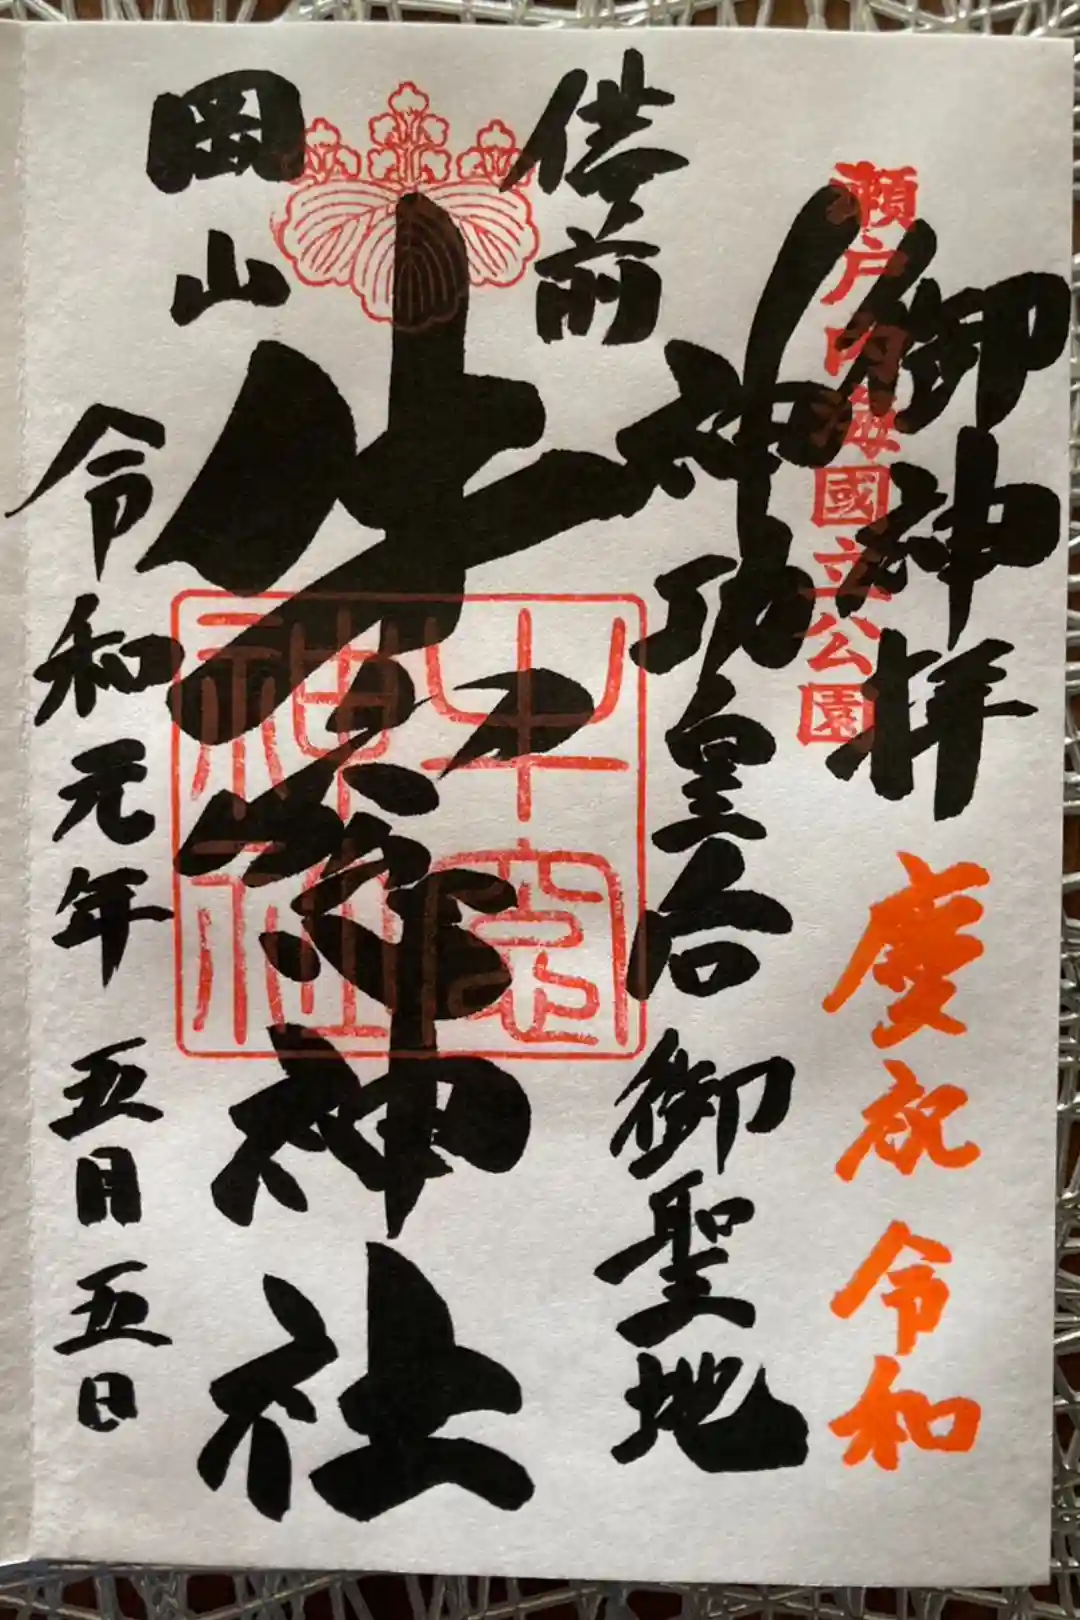 瀬戸内海國立公園
御神拝
慶祝 令和
神功皇后 御聖地
備前
牛窓神社
牛窓神社
岡山
令和元年五月五日